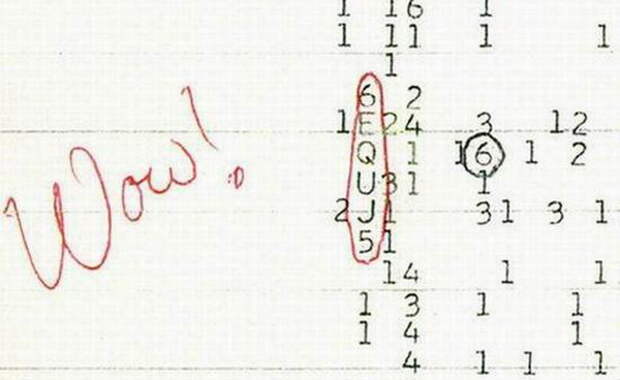 1 16 1
1 11 1 1
1
6 2
1 E 24 3 12
Wow!
Q 1 16 1 2
U 31 1
2 J 1 31 3 1
5 1
14 1 1
1 3 1 1
1 4 1
4 1 1 1